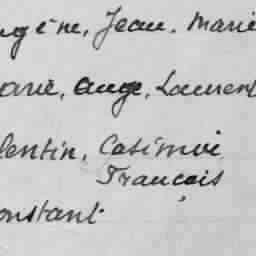 ugène, Jean, Marie
arie, Ange, Laurent
lentin, Casimir
François
onstant